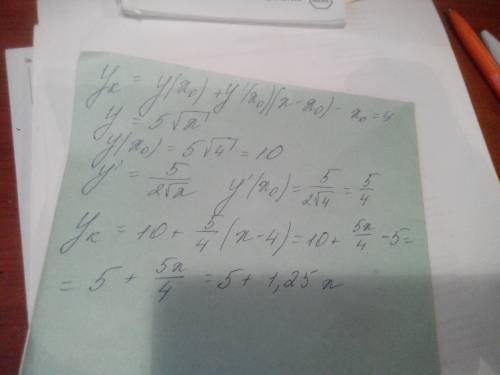 yₖ = y(x₀) + y'(x₀)(x - x₀) - x₀ = 4
y = 5√x
y(x₀) = 5√4 = 10
y' = 5/(2√x) y'(x₀) = 5/(2√4) = 5/4
yₖ = 10 + 5/4 (x - 4) = 10 + 5x/4 - 5 =
= 5 + 5x/4 = 5 + 1,25x